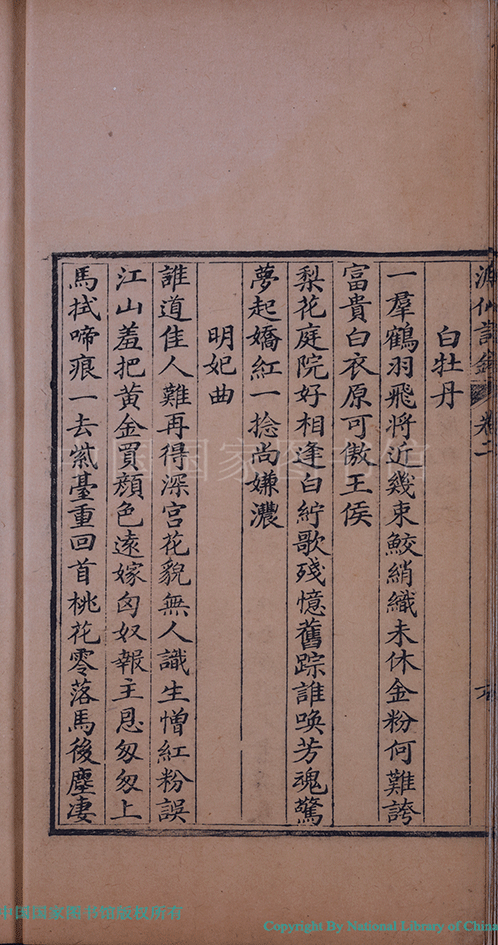 白牡丹
一羣鶴羽飛將近幾束鮫綃織未休金粉何難誇
富貴白衣原可傲王侯
梨花庭院好相逢白紵歌殘憶舊踪誰喚芳魂驚
夢起嬌紅一捻尚嫌濃
明妃曲
誰道佳人難再得深宮花貌無人識生憎紅粉誤
江山羞把黃金買顔色遠嫁匈奴報主恩匆匆上
馬拭啼痕一去紫臺重回首桃花零落馬後塵凄
中国国家图书馆
中国国家图书馆版权所有
Copyright By National Library of China